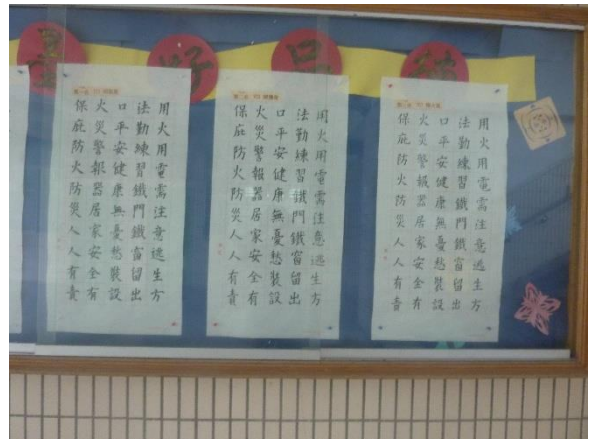 好品
用火用電需注意逃生方
法勤練習鐵門鐵窗留出
口平安健康無憂愁裝設
火災警報器居家安全有
保庇防火防災人人有責
用火用電需注意逃生方
法勤練習鐵門鐵窗留出
口平安健康無憂愁裝設
火災警報器居家安全有
保庇防火防災人人有責
用火用電需注意逃生方
法勤練習鐵門鐵窗留出
口平安健康無憂愁裝設
火災警報器居家安全有
保庇防火防災人人有責